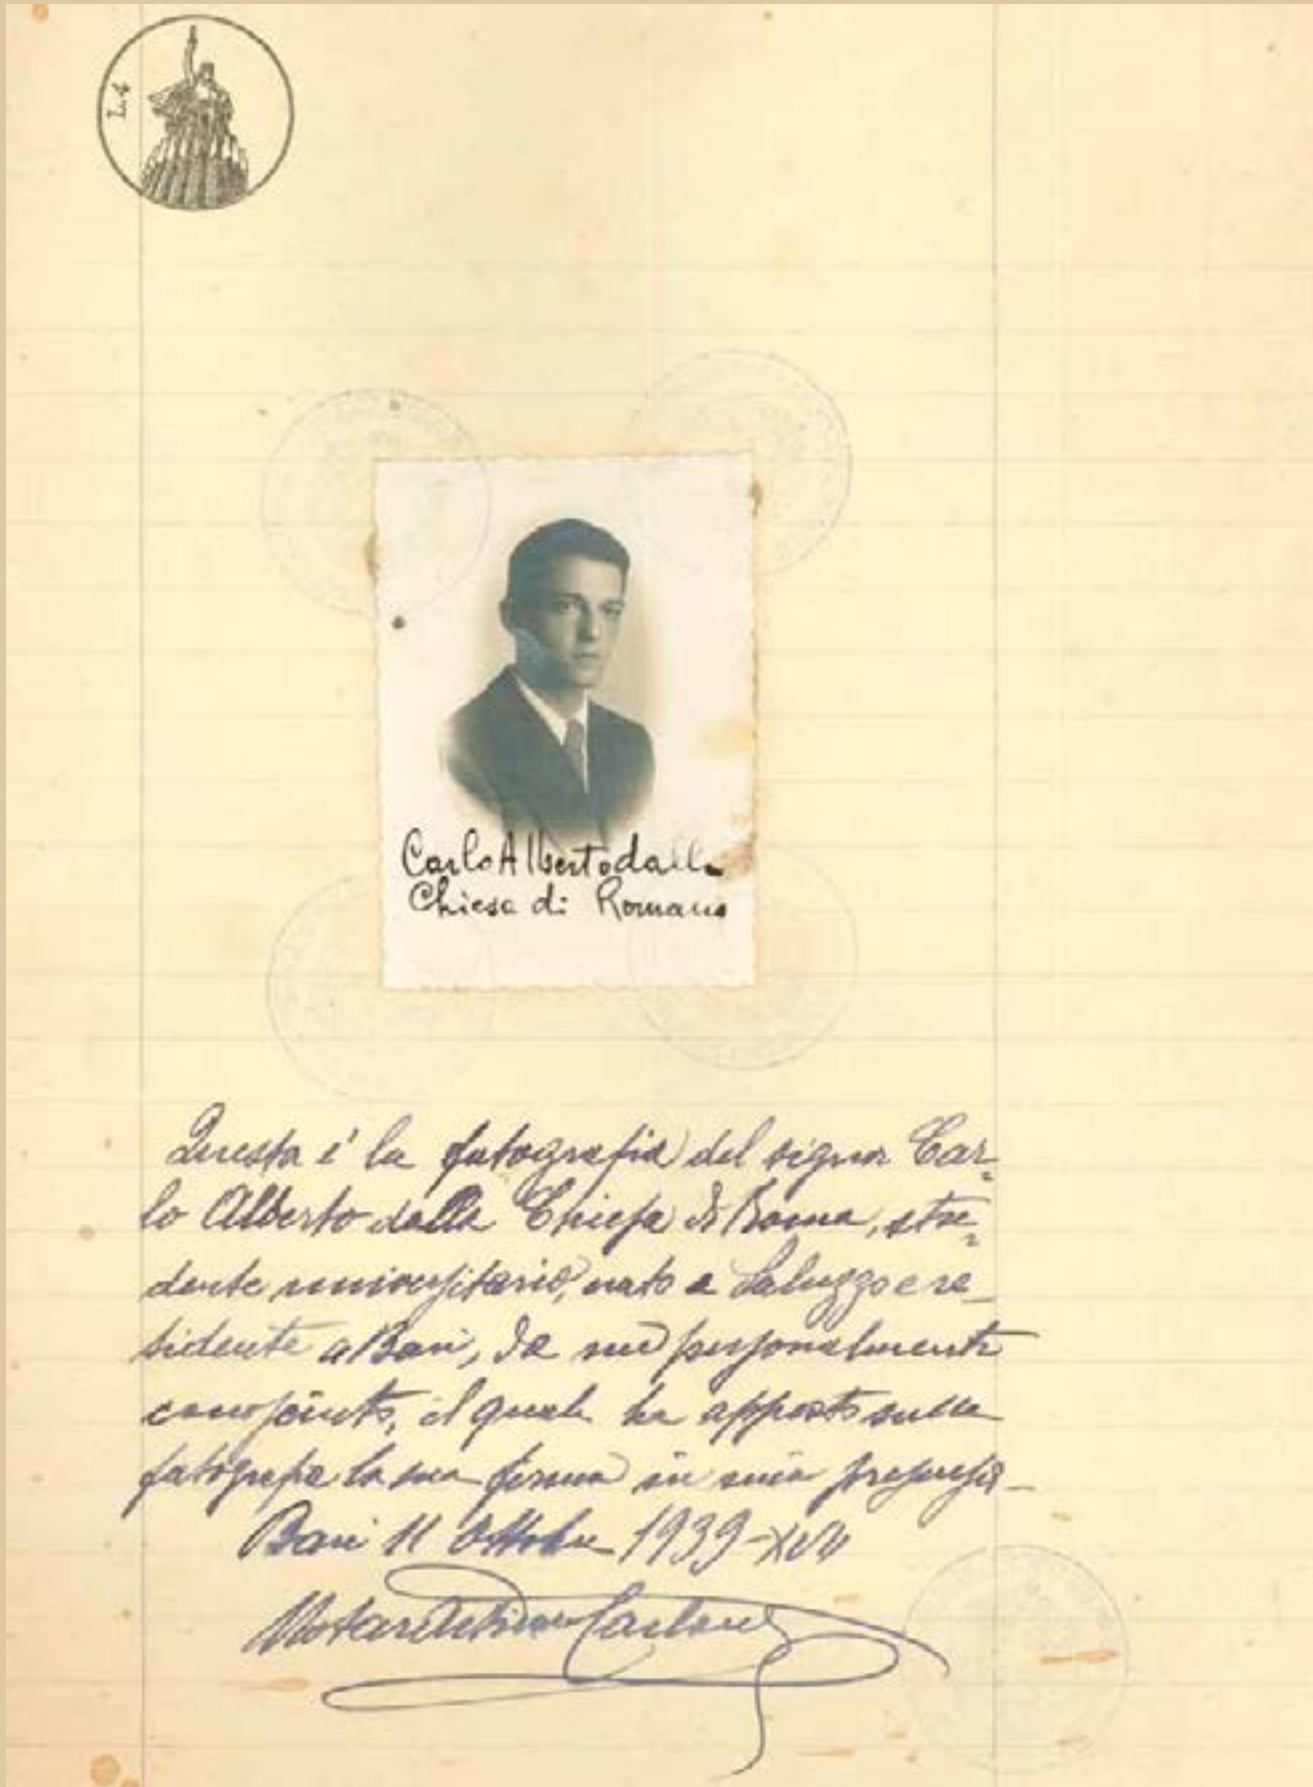 L.4
Carlo Alberto dalla
Chiesa di Romano
Questa é la fotografia del signor Car=
lo Alberto dalla Chiesa di Romano, stu=
dente universitario, nato a Saluzzo e re_
sidente a Bari, da me personalmente
conosciuto, il quale ha apposto sulla
fotografia la sua firma in mia presenza_
Bari 11 Ottobre 1939-XVII
Notar